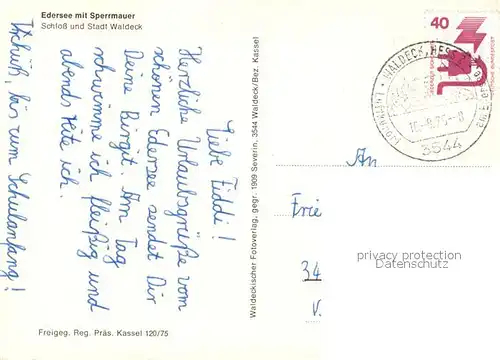 Edersee mit Sperrmauer
Schloß und Stadt Waldeck
Liebe Fiddi!
Herzliche Urlaubsgrüße vom
schönen Edersee sendet Dir
Deine Birgit. Am Tag
schwimme ich fleißig und
abends
ich.
Tschüß, bis zum Schulanfang!
Freigeg. Reg. Präs. Kassel 120/75
Waldeckischer Fotoverlag, gegr. 1909 Severin, 3544 Waldeck/Bez. Kassel
40
DEUTSCHE BUNDESPOST
WALDECK, HESS
3544
An
Frie
34
V.
privacy protection
Datenschutz